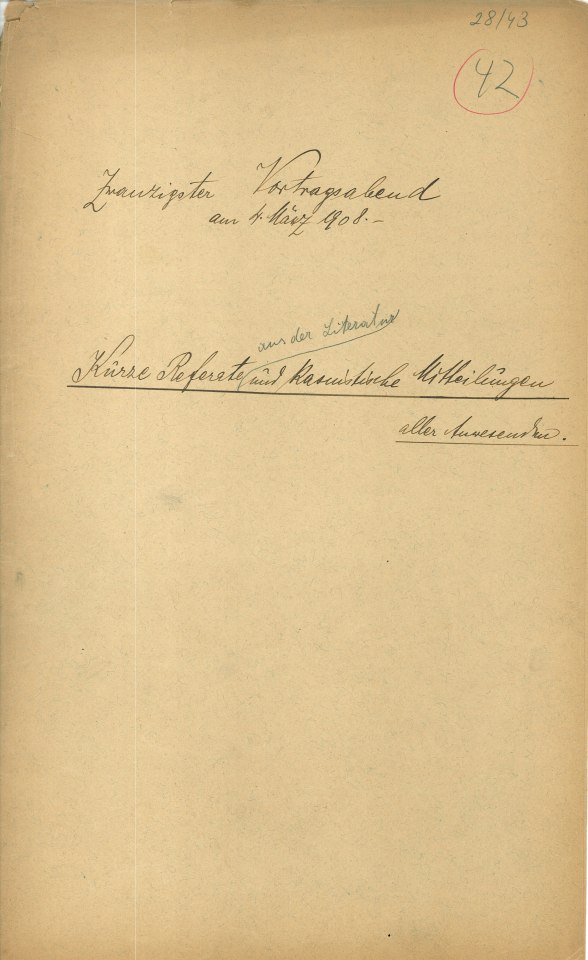 28/43
42
Zwanzigster Vortragsabend
am 4. März 1908.-
aus der Literatur
Kürze Referate und kasuistische Mitteilüngen
aller Anwesenden.